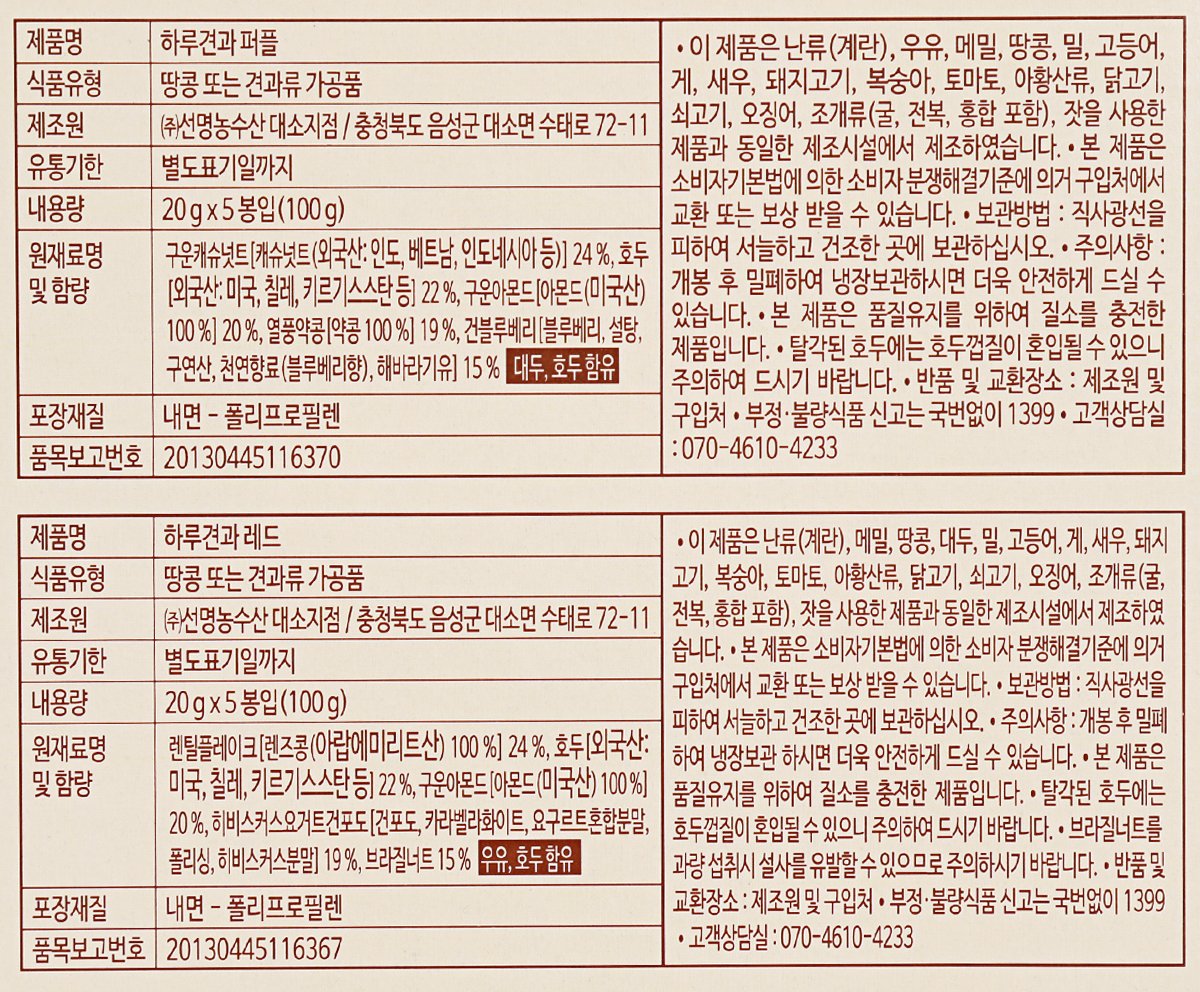 제품명 하루견과 퍼플
식품유형 땅콩 또는 견과류 가공품
제조원 ㈜선명농수산 대소지점 / 충청북도 음성군 대소면 수태로 72-11
유통기한 별도표기일까지
내용량 20 g x 5 봉입(100 g)
원재료명 및 함량
구운캐슈넛트[캐슈넛트(외국산: 인도, 베트남, 인도네시아 등)] 24 %, 호두
[외국산: 미국, 칠레, 키르기스스탄 등] 22 %, 구운아몬드[아몬드(미국산)
100 %] 20 %, 열풍약콩[약콩 100 %] 19 %, 건블루베리[블루베리, 설탕,
구연산, 천연향료(블루베리향), 해바라기유] 15 % 대두, 호두 함유
포장재질 내면 - 폴리프로필렌
품목보고번호 20130445116370
• 이 제품은 난류(계란), 우유, 메밀, 땅콩, 밀, 고등어,
게, 새우, 돼지고기, 복숭아, 토마토, 아황산류, 닭고기,
쇠고기, 오징어, 조개류(굴, 전복, 홍합 포함), 잣을 사용한
제품과 동일한 제조시설에서 제조하였습니다. • 본 제품은
소비자기본법에 의한 소비자 분쟁해결기준에 의거 구입처에서
교환 또는 보상 받을 수 있습니다. • 보관방법 : 직사광선을
피하여 서늘하고 건조한 곳에 보관하십시오. • 주의사항 :
개봉 후 밀폐하여 냉장보관하시면 더욱 안전하게 드실 수
있습니다. • 본 제품은 품질유지를 위하여 질소를 충전한
제품입니다. • 탈각된 호두에는 호두껍질이 혼입될 수 있으니
주의하여 드시기 바랍니다. • 반품 및 교환장소 : 제조원 및
구입처 • 부정·불량식품 신고는 국번없이 1399 • 고객상담실
: 070-4610-4233
제품명 하루견과 레드
식품유형 땅콩 또는 견과류 가공품
제조원 ㈜선명농수산 대소지점 / 충청북도 음성군 대소면 수태로 72-11
유통기한 별도표기일까지
내용량 20 g x 5 봉입(100 g)
원재료명 및 함량
렌틸플레이크[렌즈콩(아랍에미리트산) 100 %] 24 %, 호두[외국산:
미국, 칠레, 키르기스스탄 등] 22 %, 구운아몬드[아몬드(미국산) 100 %]
20 %, 히비스커스요거트건포도[건포도, 카라벨라화이트, 요구르트혼합분말,
폴리싱, 히비스커스분말] 19 %, 브라질너트 15 % 우유, 호두 함유
포장재질 내면 - 폴리프로필렌
품목보고번호 20130445116367
• 이 제품은 난류(계란), 메밀, 땅콩, 대두, 밀, 고등어, 게, 새우, 돼지
고기, 복숭아, 토마토, 아황산류, 닭고기, 쇠고기, 오징어, 조개류(굴,
전복, 홍합 포함), 잣을 사용한 제품과 동일한 제조시설에서 제조하였
습니다. • 본 제품은 소비자기본법에 의한 소비자 분쟁해결기준에 의거
구입처에서 교환 또는 보상 받을 수 있습니다. • 보관방법 : 직사광선을
피하여 서늘하고 건조한 곳에 보관하십시오. • 주의사항 : 개봉 후 밀폐
하여 냉장보관 하시면 더욱 안전하게 드실 수 있습니다. • 본 제품은
품질유지를 위하여 질소를 충전한 제품입니다. • 탈각된 호두에는
호두껍질이 혼입될 수 있으니 주의하여 드시기 바랍니다. • 브라질너트를
과량 섭취시 설사를 유발할 수 있으므로 주의하시기 바랍니다. • 반품 및
교환장소 : 제조원 및 구입처 • 부정·불량식품 신고는 국번없이 1399
• 고객상담실 : 070-4610-4233